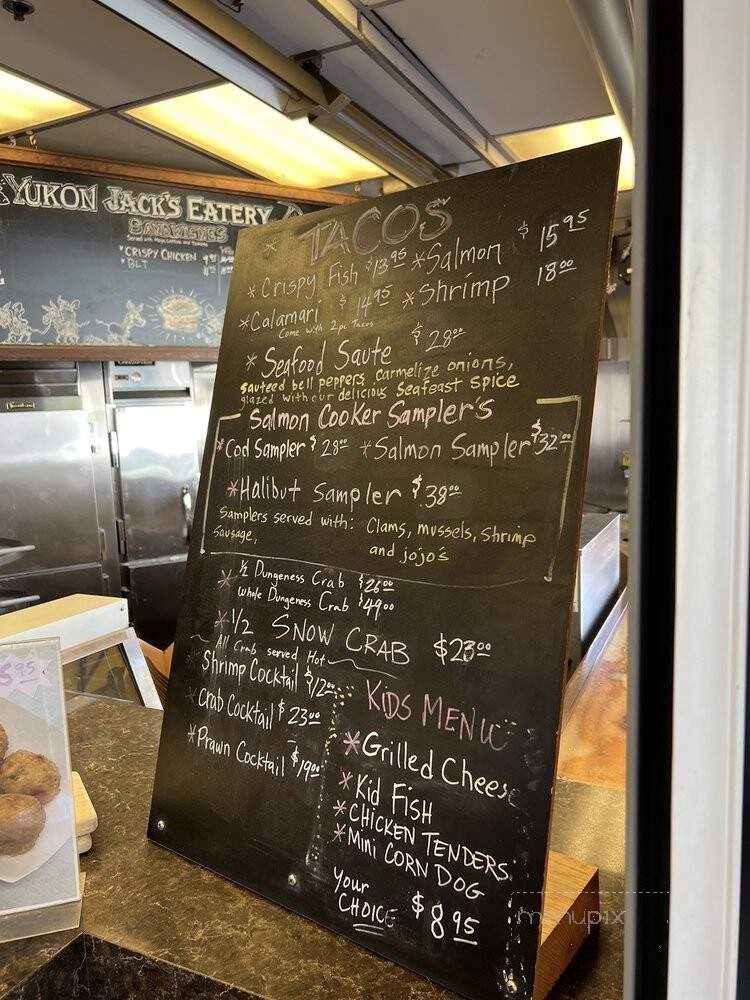 YUKON JACK'S EATERY
SANDWICHES
* CRISPY CHICKEN
* BLT
TACOS
* Crispy Fish $13.95 * Salmon $15.95
* Calamari $14.95 * Shrimp 18.00
Come with 2 pc Tacos
* Seafood Saute $28.00
sauteed bell peppers, carmelize onions,
glazed with our delicious Seafeast spice
Salmon Cooker Sampler's
* Cod Sampler $28.00 * Salmon Sampler $32.00
* Halibut Sampler $38.00
Samplers served with: Clams, mussels, shrimp
Sausage, and jojo's
* 1/2 Dungeness Crab $26.00
whole Dungeness Crab $49.00
* 1/2 SNOW CRAB $23.00
~ All Crab served Hot ~
Shrimp Cocktail $12.00
* Crab Cocktail $23.00
* Prawn Cocktail $19.00
KIDS MENU
* Grilled Cheese
* Kid Fish
* CHICKEN TENDERS
* Mini CORN DOG
your
CHOICE $8.95
5.95
menupix